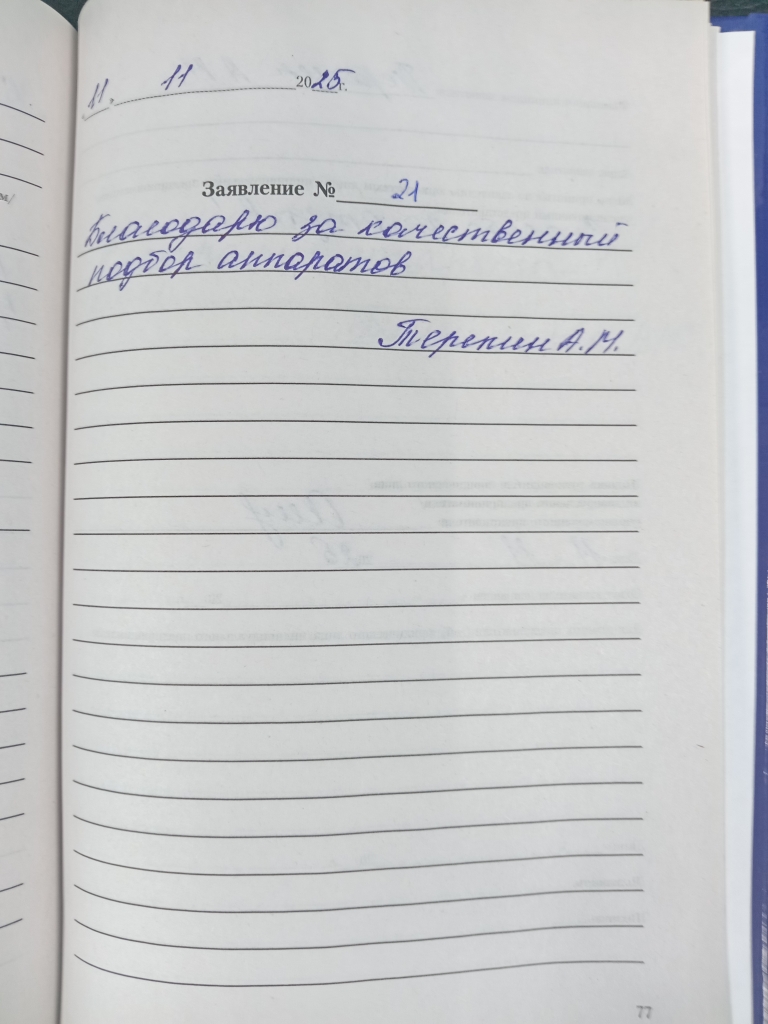 11. 11 2025г.
Заявление № 21
Благодарю за качественный
подбор аппаратов
Терепин А.М.
77